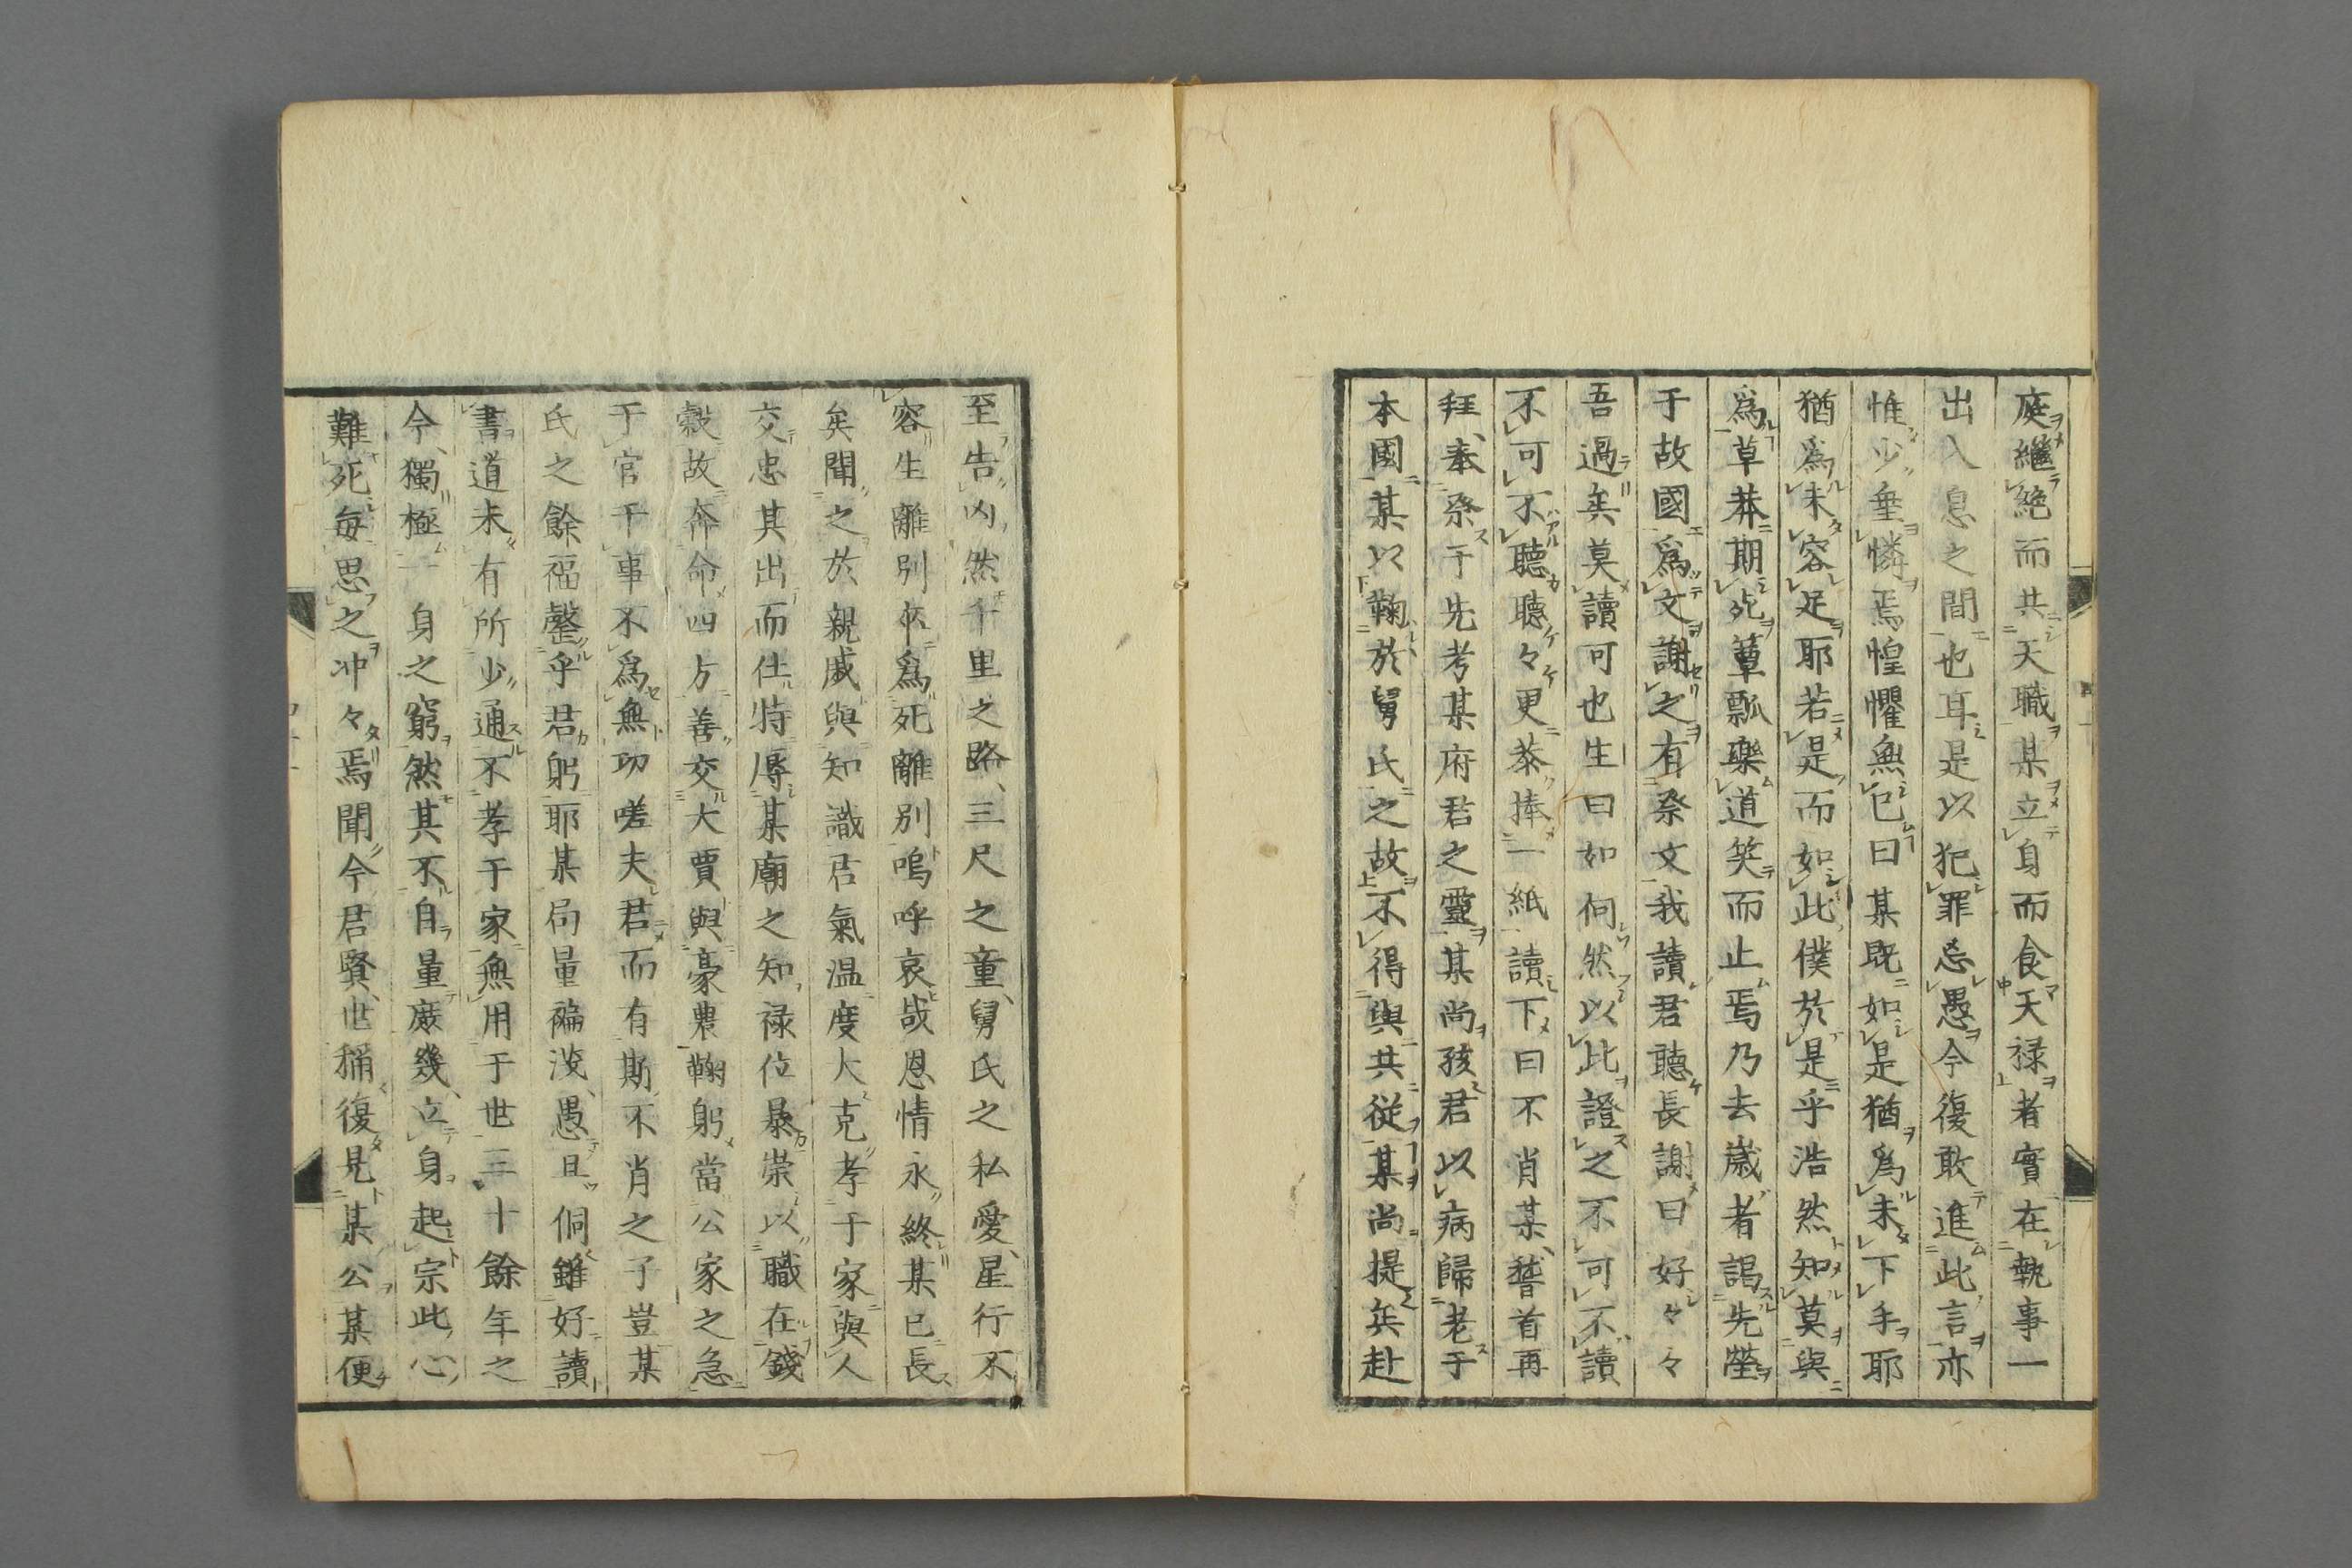 庭繼絶而共天職某立身而食天禄者實在執事一
出入息之間也耳是以犯罪忌愚今復敢進此言亦
惟少垂憐焉惶懼無已曰某既如是猶為未下手耶
猶為未容足耶若是而如此僕於是乎浩然知莫與
為草莽期死簞瓢樂道笑而止焉乃去歳者謁先塋
于故國為文謝之有祭文我讀君聽長謝曰好々々
吾過矣莫讀可也生曰如何然以此證之不可不讀
不可不聽聽々更恭捧一紙讀下曰不肖某、稽首再
拜、奉祭于先考某府君之靈某尚孩君以病歸老于
本國某以鞠於舅氏之故不得與共従某尚提矣赴
至告凶然千里之路、三尺之童、舅氏之私愛、星行不
容生離別夾為死離別嗚呼哀哉恩情永終某已長
矣聞之於親戚與知識君氣温度大克孝于家與人
交忠其出而仕特辱某廟之知禄位暴崇以職在錢
穀故奔命四方善交大賈與豪農鞠躬當公家之急
于官干事不為無功嗟夫君而有斯不肖之子豈某
氏之餘福罄乎君躬耶某局量褊淺、愚且侗雖好讀
書道未有所少通不孝于家無用于世三十餘年之
今、獨極一身之窮然其不自量庶幾、立身起宗此心
難死毎思之冲々焉聞今君賢、世稱復見某公某便